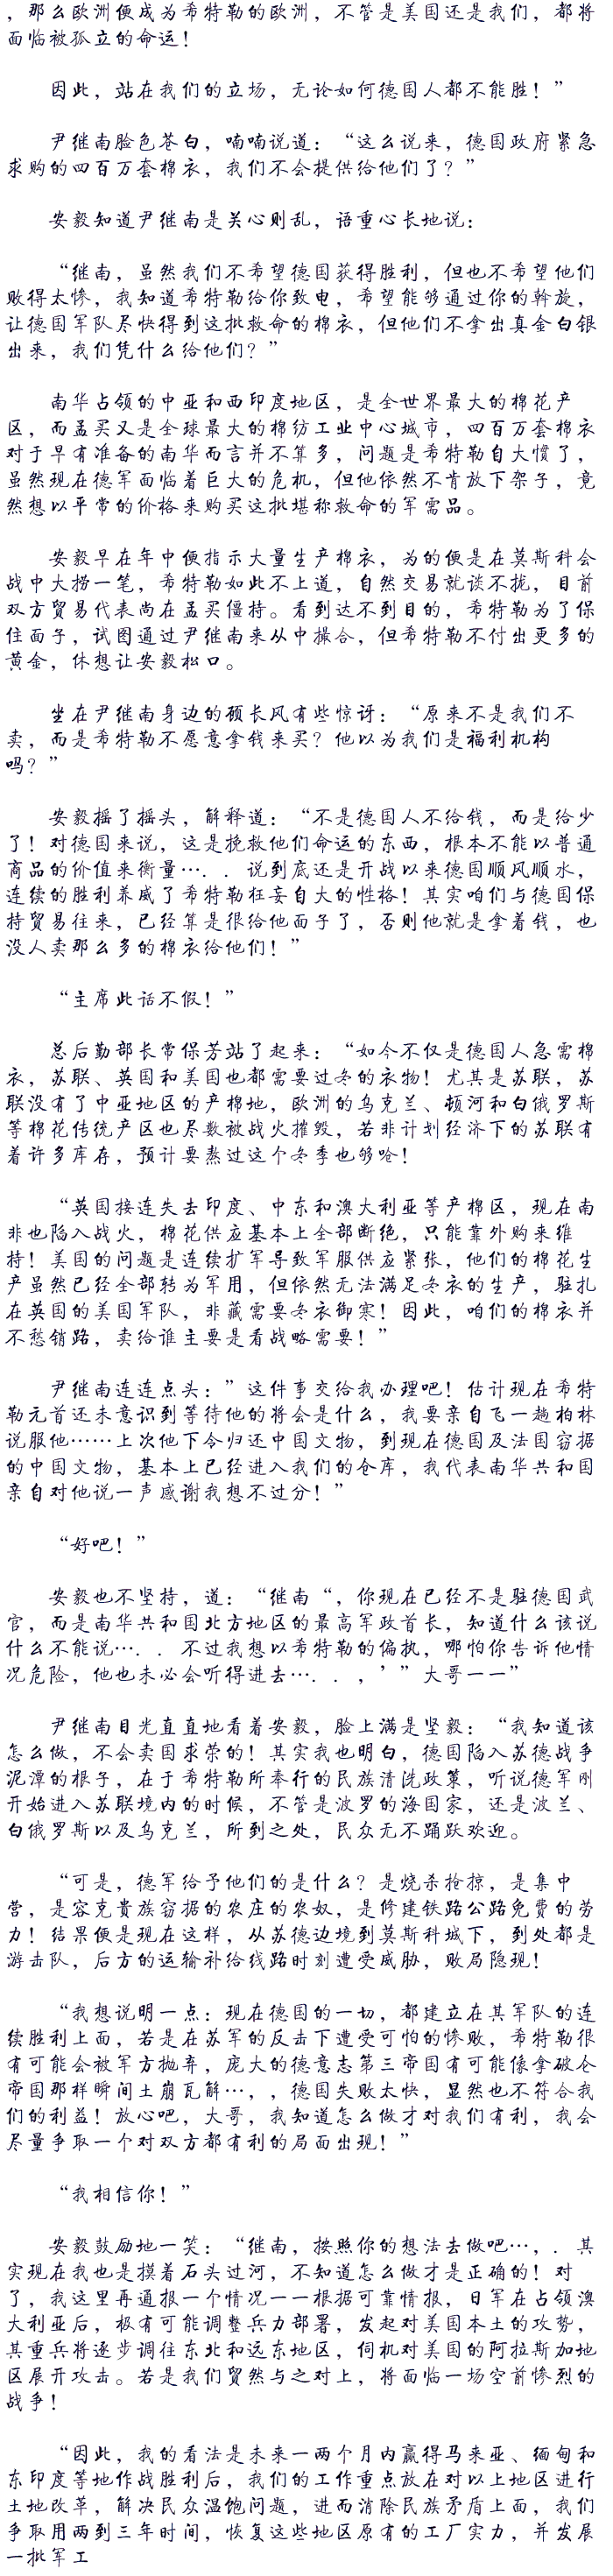 ，那么欧洲便成为希特勒的欧洲，不管是美国还是我们，都将
面临被孤立的命运！
因此，站在我们的立场，无论如何德国人都不能胜！”
尹继南脸色苍白，喃喃说道：“这么说来，德国政府紧急
求购的四百万套棉衣，我们不会提供给他们了？”
安毅知道尹继南是关心则乱，语重心长地说：
“继南，虽然我们不希望德国获得胜利，但也不希望他们
败得太惨，我知道希特勒给你致电，希望能够通过你的斡旋，
让德国军队尽快得到这批救命的棉衣，但他们不拿出真金白银
出来，我们凭什么给他们？”
南华占领的中亚和西印度地区，是全世界最大的棉花产
区，而孟买又是全球最大的棉纺工业中心城市，四百万套棉衣
对于早有准备的南华而言并不算多，问题是希特勒自大惯了，
虽然现在德军面临着巨大的危机，但他依然不肯放下架子，竟
然想以平常的价格来购买这批堪称救命的军需品。
安毅早在年中便指示大量生产棉衣，为的便是在莫斯科会
战中大捞一笔，希特勒如此不上道，自然交易就谈不拢，目前
双方贸易代表尚在孟买僵持。看到达不到目的，希特勒为了保
住面子，试图通过尹继南来从中撮合，但希特勒不付出更多的
黄金，休想让安毅松口。
坐在尹继南身边的顾长风有些惊讶：“原来不是我们不
卖，而是希特勒不愿意拿钱来买？他以为我们是福利机构
吗？”
安毅摇了摇头，解释道：“不是德国人不给钱，而是给少
了！对德国来说，这是挽救他们命运的东西，根本不能以普通
商品的价值来衡量…．．说到底还是开战以来德国顺风顺水，
连续的胜利养成了希特勒狂妄自大的性格！其实咱们与德国保
持贸易往来，已经算是很给他面子了，否则他就是拿着钱，也
没人卖那么多的棉衣给他们！”
“主席此话不假！”
总后勤部长常保芳站了起来：“如今不仅是德国人急需棉
衣，苏联、英国和美国也都需要过冬的衣物！尤其是苏联，苏
联没有了中亚地区的产棉地，欧洲的乌克兰、顿河和白俄罗斯
等棉花传统产区也尽数被战火摧毁，若非计划经济下的苏联有
着许多库存，预计要熬过这个冬季也够呛！
“英国接连失去印度、中东和澳大利亚等产棉区，现在南
非也陷入战火，棉花供应基本上全部断绝，只能靠外购来维
持！美国的问题是连续扩军导致军服供应紧张，他们的棉花生
产虽然已经全部转为军用，但依然无法满足冬衣的生产，驻扎
在英国的美国军队，非藏需要冬衣御寒！因此，咱们的棉衣并
不愁销路，卖给谁主要是看战略需要！”
尹继南连连点头：”这件事交给我办理吧！估计现在希特
勒元首还未意识到等待他的将会是什么，我要亲自飞一趟柏林
说服他……上次他下令归还中国文物，到现在德国及法国窃据
的中国文物，基本上已经进入我们的仓库，我代表南华共和国
亲自对他说一声感谢我想不过分！”
“好吧！”
安毅也不坚持，道：“继南“，你现在已经不是驻德国武
官，而是南华共和国北方地区的最高军政首长，知道什么该说
什么不能说…．．不过我想以希特勒的偏执，哪怕你告诉他情
况危险，他也未必会听得进去…．．，’”大哥一一”
尹继南目光直直地看着安毅，脸上满是坚毅：“我知道该
怎么做，不会卖国求荣的！其实我也明白，德国陷入苏德战争
泥潭的根子，在于希特勒所奉行的民族清洗政策，听说德军刚
开始进入苏联境内的时候，不管是波罗的海国家，还是波兰、
白俄罗斯以及乌克兰，所到之处，民众无不踊跃欢迎。
“可是，德军给予他们的是什么？是烧杀抢掠，是集中
营，是容克贵族窃据的农庄的农奴，是修建铁路公路免费的劳
力！结果便是现在这样，从苏德边境到莫斯科城下，到处都是
游击队，后方的运输补给线路时刻遭受威胁，败局隐现！
“我想说明一点：现在德国的一切，都建立在其军队的连
续胜利上面，若是在苏军的反击下遭受可怕的惨败，希特勒很
有可能会被军方抛弃，庞大的德意志第三帝国有可能像拿破仑
帝国那样瞬间土崩瓦解…，，德国失败太快，显然也不符合我
们的利益！放心吧，大哥，我知道怎么做才对我们有利，我会
尽量争取一个对双方都有利的局面出现！”
“我相信你！”
安毅鼓励地一笑：“继南，按照你的想法去做吧…，．其
实现在我也是摸着石头过河，不知道怎么做才是正确的！对
了，我这里再通报一个情况一一根据可靠情报，日军在占领澳
大利亚后，极有可能调整兵力部署，发起对美国本土的攻势，
其重兵将逐步调往东北和远东地区，伺机对美国的阿拉斯加地
区展开攻击。若是我们贸然与之对上，将面临一场空前惨烈的
战争！
“因此，我的看法是未来一两个月内赢得马来亚、缅甸和
东印度等地作战胜利后，我们的工作重点放在对以上地区进行
土地改革，解决民众温饱问题，进而消除民族矛盾上面，我们
争取用两到三年时间，恢复这些地区原有的工厂实力，并发展
一批军工